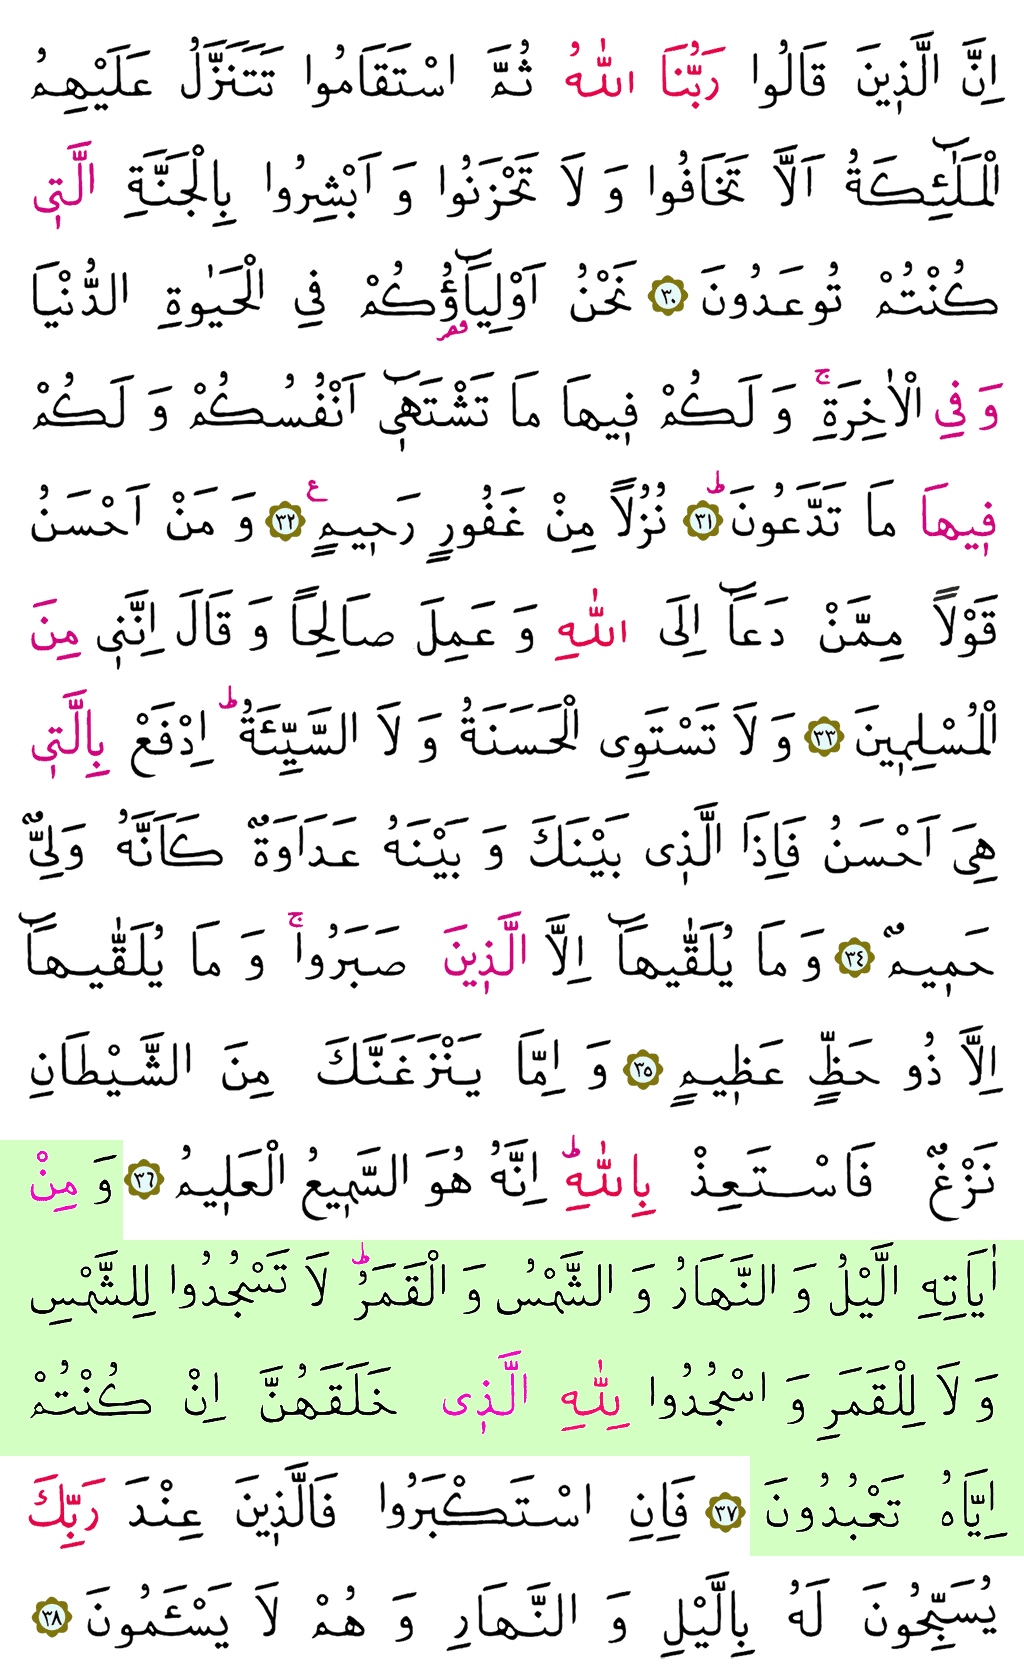 اِنَّ الَّذ۪ينَ قَالُوا رَبُّنَا اللّٰهُ ثُمَّ اسْتَقَامُوا تَتَنَزَّلُ عَلَيْهِمُ
الْمَلٰٓئِكَةُ اَلَّا تَخَافُوا وَ لَا تَحْزَنُوا وَ اَبْشِرُوا بِالْجَنَّةِ الَّت۪ى
كُنْتُمْ تُوعَدُونَ ﴿٣٠﴾ نَحْنُ اَوْلِيَٓاؤُ۬كُمْ فِي الْحَيٰوةِ الدُّنْيَا
وَ فِي الْاٰخِرَةِۚ وَ لَكُمْ ف۪يهَا مَا تَشْتَه۪ٓى اَنْفُسُكُمْ وَ لَكُمْ
ف۪يهَا مَا تَدَّعُونَۜ ﴿٣١﴾ نُزُلًا مِنْ غَفُورٍ رَح۪يمٍ ع ﴿٣٢﴾ وَ مَنْ اَحْسَنُ
قَوْلًا مِمَّنْ دَعَٓا اِلَى اللّٰهِ وَ عَمِلَ صَالِحًا وَ قَالَ اِنَّن۪ى مِنَ
الْمُسْلِم۪ينَ ﴿٣٣﴾ وَ لَا تَسْتَوِى الْحَسَنَةُ وَ لَا السَّيِّئَةُۜ اِدْفَعْ بِالَّت۪ى
هِيَ اَحْسَنُ فَاِذَا الَّذ۪ى بَيْنَكَ وَ بَيْنَهُ عَدَاوَةٌ كَاَنَّهُ وَلِيٌّ
حَم۪يمٌ ﴿٣٤﴾ وَ مَا يُلَقّٰيهَٓا اِلَّا الَّذ۪ينَ صَبَرُواۚ وَ مَا يُلَقّٰيهَٓا
اِلَّا ذُو حَظٍّ عَظ۪يمٍ ﴿٣٥﴾ وَ اِمَّا يَنْزَغَنَّكَ مِنَ الشَّيْطَانِ
نَزْغٌ فَاسْتَعِذْ بِاللّٰهِۜ اِنَّهُ هُوَ السَّم۪يعُ الْعَل۪يمُ ﴿٣٦﴾ وَ مِنْ
اٰيَاتِهِ الَّيْلُ وَ النَّهَارُ وَ الشَّمْسُ وَ الْقَمَرُۜ لَا تَسْجُدُوا لِلشَّمْسِ
وَ لَا لِلْقَمَرِ وَ اسْجُدُوا لِلّٰهِ الَّذ۪ى خَلَقَهُنَّ اِنْ كُنْتُمْ
اِيَّاهُ تَعْبُدُونَ ﴿٣٧﴾ فَاِنِ اسْتَكْبَرُوا فَالَّذ۪ينَ عِنْدَ رَبِّكَ
يُسَبِّحُونَ لَهُ بِالَّيْلِ وَ النَّهَارِ وَ هُمْ لَا يَسْئَمُونَ ﴿٣٨﴾